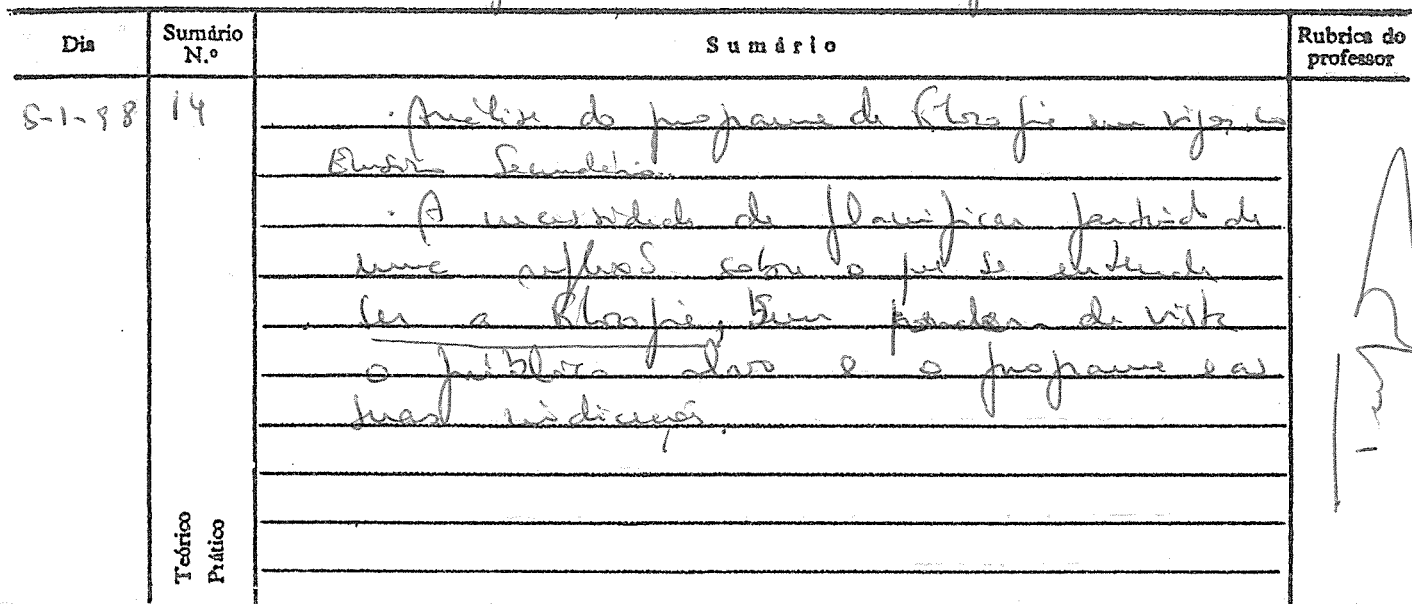 Dia Sumário N.º Sumário Rubrica do professor
5-1-98 14 . Análise do programa de Filosofia em vigor no
Ensino Secundário.
. A necessidade de planificar partindo de
uma reflexão sobre o que se entende
ser a Filosofia, sem perder de vista
o público alvo e o programa e as
suas indicações.
Teórico
Prático